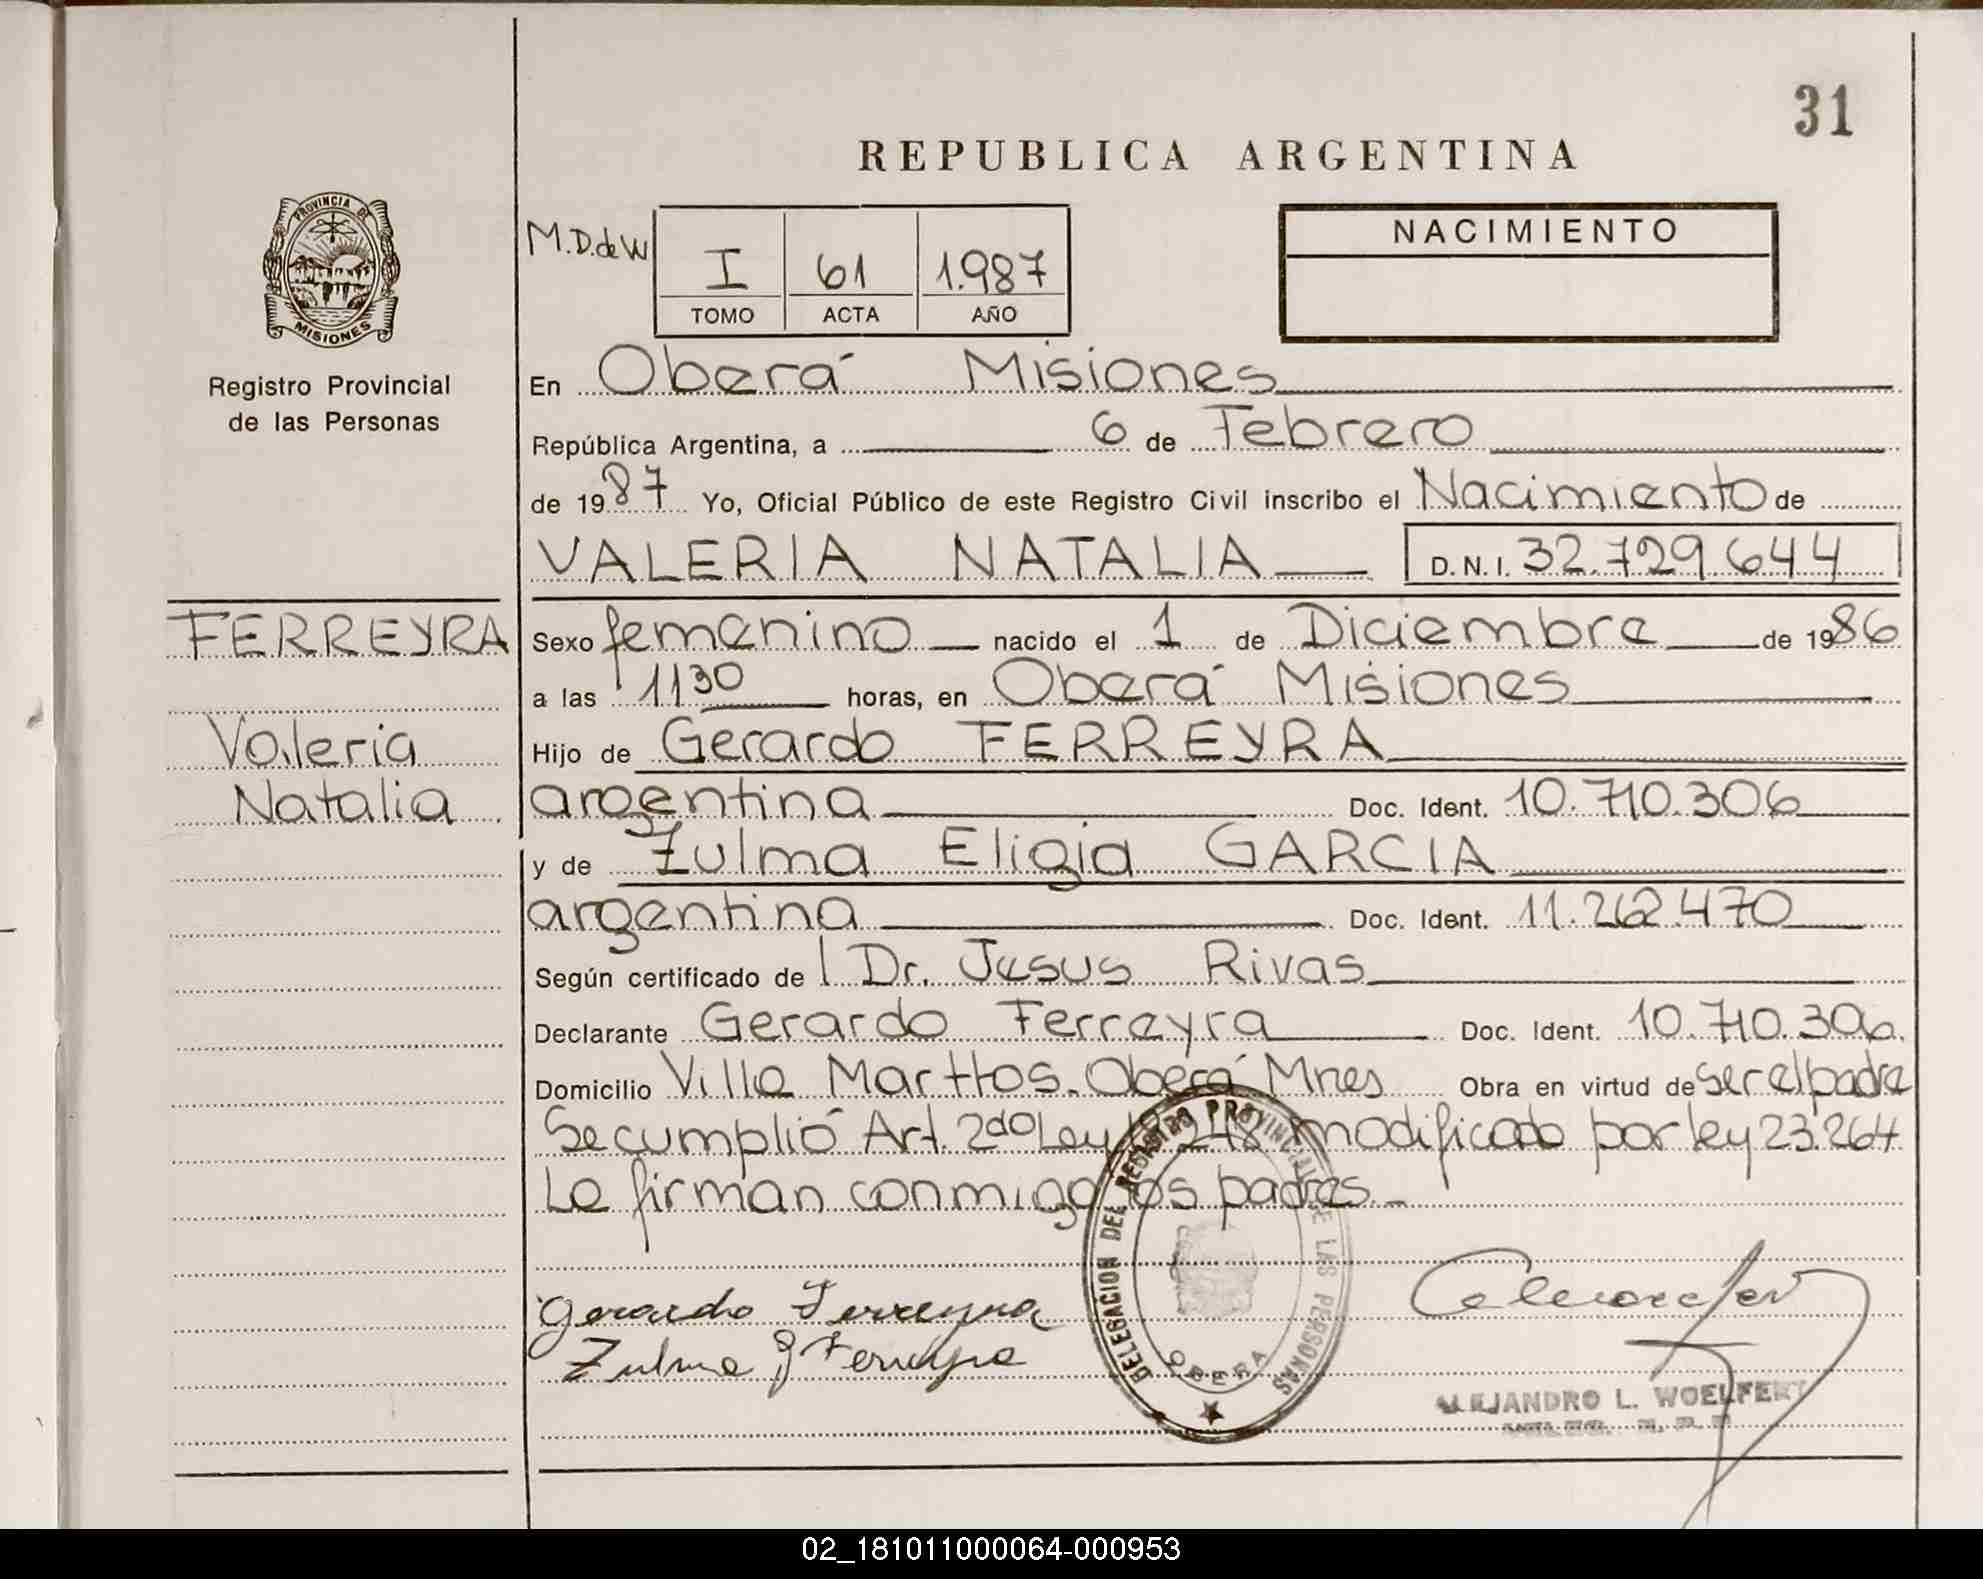 31
REPUBLICA ARGENTINA
PROVINCIA DE
MISIONES
Registro Provincial
de las Personas
M.D.de W
I 61 1.987
TOMO ACTA AÑO
NACIMIENTO
En Oberá Misiones
República Argentina, a 6 de Febrero
de 1987 Yo, Oficial Público de este Registro Civil inscribo el Nacimiento de
VALERIA NATALIA D.N.I. 32.729.644
FERREYRA
Valeria
Natalia
Sexo femenino nacido el 1 de Diciembre de 1986
a las 1130 horas, en Oberá Misiones
Hijo de Gerardo FERREYRA
argentina Doc. Ident. 10.710.306
y de Zulma Eligia GARCIA
argentina Doc. Ident. 11.262.470
Según certificado de l Dr. Jesus Rivas
Declarante Gerardo Ferreyra Doc. Ident. 10.710.306.
Domicilio Villa Marttos. Oberá Mnes Obra en virtud de ser el padre
Se cumplió Art. 2do Ley modificado por ley 23.264
Le firman conmigo los padres.-
DELEGACION DEL REGISTRO PROVINCIAL DE LAS PERSONAS
OBERA
Gerardo Ferreyra
Zulma G Ferreyra
ALEJANDRO L. WOELFERT
02_181011000064-000953